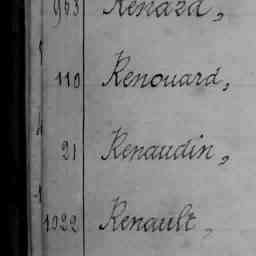 963 Renard,
110 Renouard,
21 Renaudin,
1022 Renault,